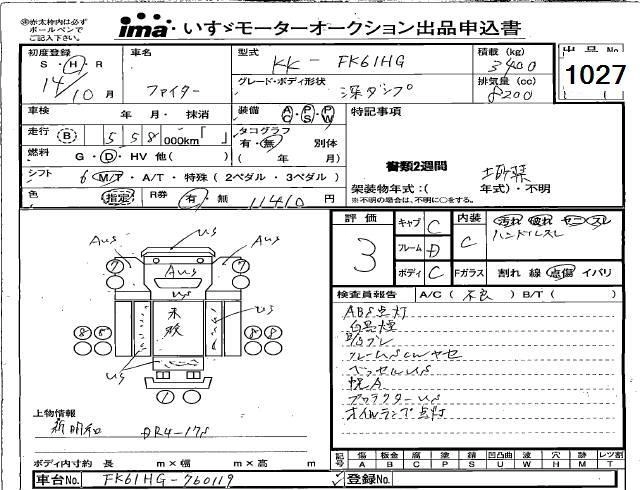 ※赤太枠内は必ず
ボールペンで
ご記入下さい。
ima いすゞモーターオークション出品申込書
初度登録
S・H・R
14/10月
車名
ファイター
型式
KK - FK61HG
グレード・ボディ形状
深ダンプ
積載 (kg)
3400
排気量 (cc)
8200
出品No.
1027
車検
年 月・抹消
装備
AC・PS・PW
特記事項
走行
B 558 000km「 」
タコグラフ
有・無 別体
( 年 月)
燃料
G・D・HV 他( )
書類2週間
土砂禁
シフト
6 M/T・A/T・特殊(2ペダル・3ペダル)
架装物年式:( 年式)・不明
※不明の場合は、不明に○をする。
色
指定
R券
有・無 11410 円
評価
3
キャブ C
フレーム D
ボディ C
内装
C
汚れ 破れ ヤニ・スレ
ハンドルスレ
Fガラス
割れ 線 点傷 イバリ
検査員報告 A/C( 不良 )B/T( )
ABS点灯
白黒煙
フレームUSCWヤセ
ベッセルUS
プロテクターUS
オイルランプ点灯
US
AUS
AUS
AUS
US
US
US
上物情報
新明和 DR4-17S
ボディ内寸約 長 m×幅 m×高 m
記号
傷 板金 腐 塗 錆 凹凸曲 波 穴 跡 レツ割
A B C P S U W H M T
車台No. FK61HG-760119
登録No.